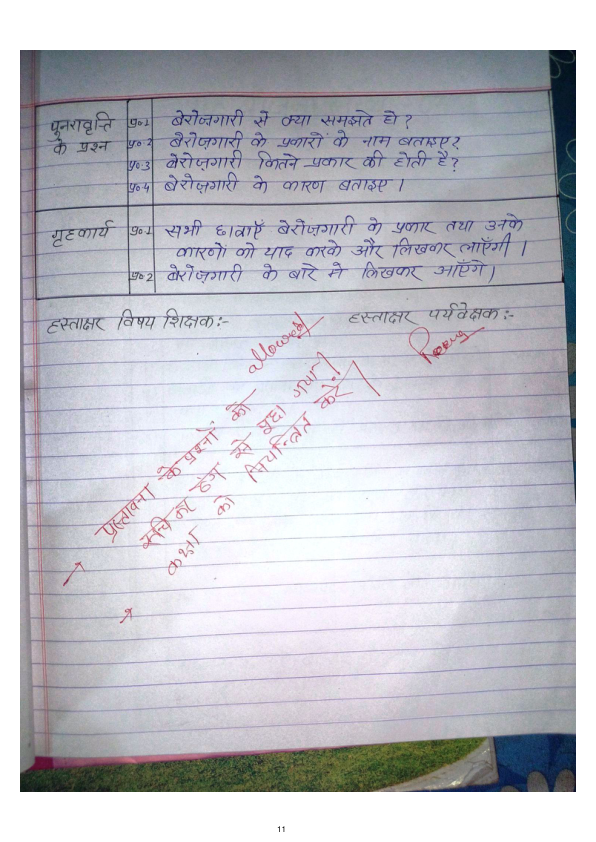 पुनरावृत्ति के प्रश्न
प्र०1 बेरोज़गारी से क्या समझते हो?
प्र०2 बेरोज़गारी के प्रकारों के नाम बताइए?
प्र०3 बेरोज़गारी कितने प्रकार की होती है?
प्र०4 बेरोज़गारी के कारण बताइए।
गृहकार्य
प्र०1 सभी छात्राएँ बेरोज़गारी के प्रकार तथा उनके
कारणों को याद करके और लिखकर लाएँगी।
प्र०2 बेरोज़गारी के बारे मे लिखकर आएँगे।
हस्ताक्षर विषय शिक्षक:- हस्ताक्षर पर्यवेक्षक:-
प्रस्तावना के प्रश्नों को
रुचिकर ढंग से पूछा गया।
कक्षा को नियन्त्रित करें।
11